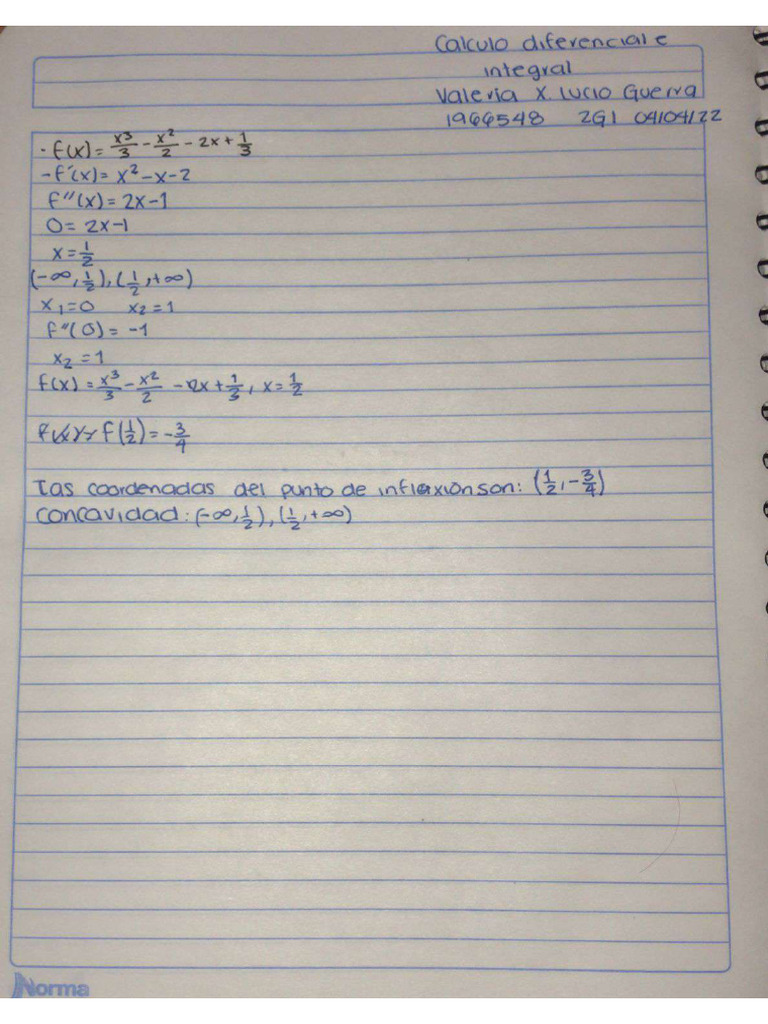 Calculo diferencial e
integral
Valeria X. Lucio Guerra
1966548 2G1 04/04/22
- f(x) = x³/3 - x²/2 - 2x + 1/3
- f'(x) = x² - x - 2
f''(x) = 2x - 1
0 = 2x - 1
x = 1/2
(-∞, 1/2), (1/2, +∞)
x₁ = 0 x₂ = 1
f''(0) = -1
x₂ = 1
f(x) = x³/3 - x²/2 - 2x + 1/3, x = 1/2
f(1/2) = -3/4
Las coordenadas del punto de inflexión son: (1/2, -3/4)
Concavidad: (-∞, 1/2), (1/2, +∞)
Norma